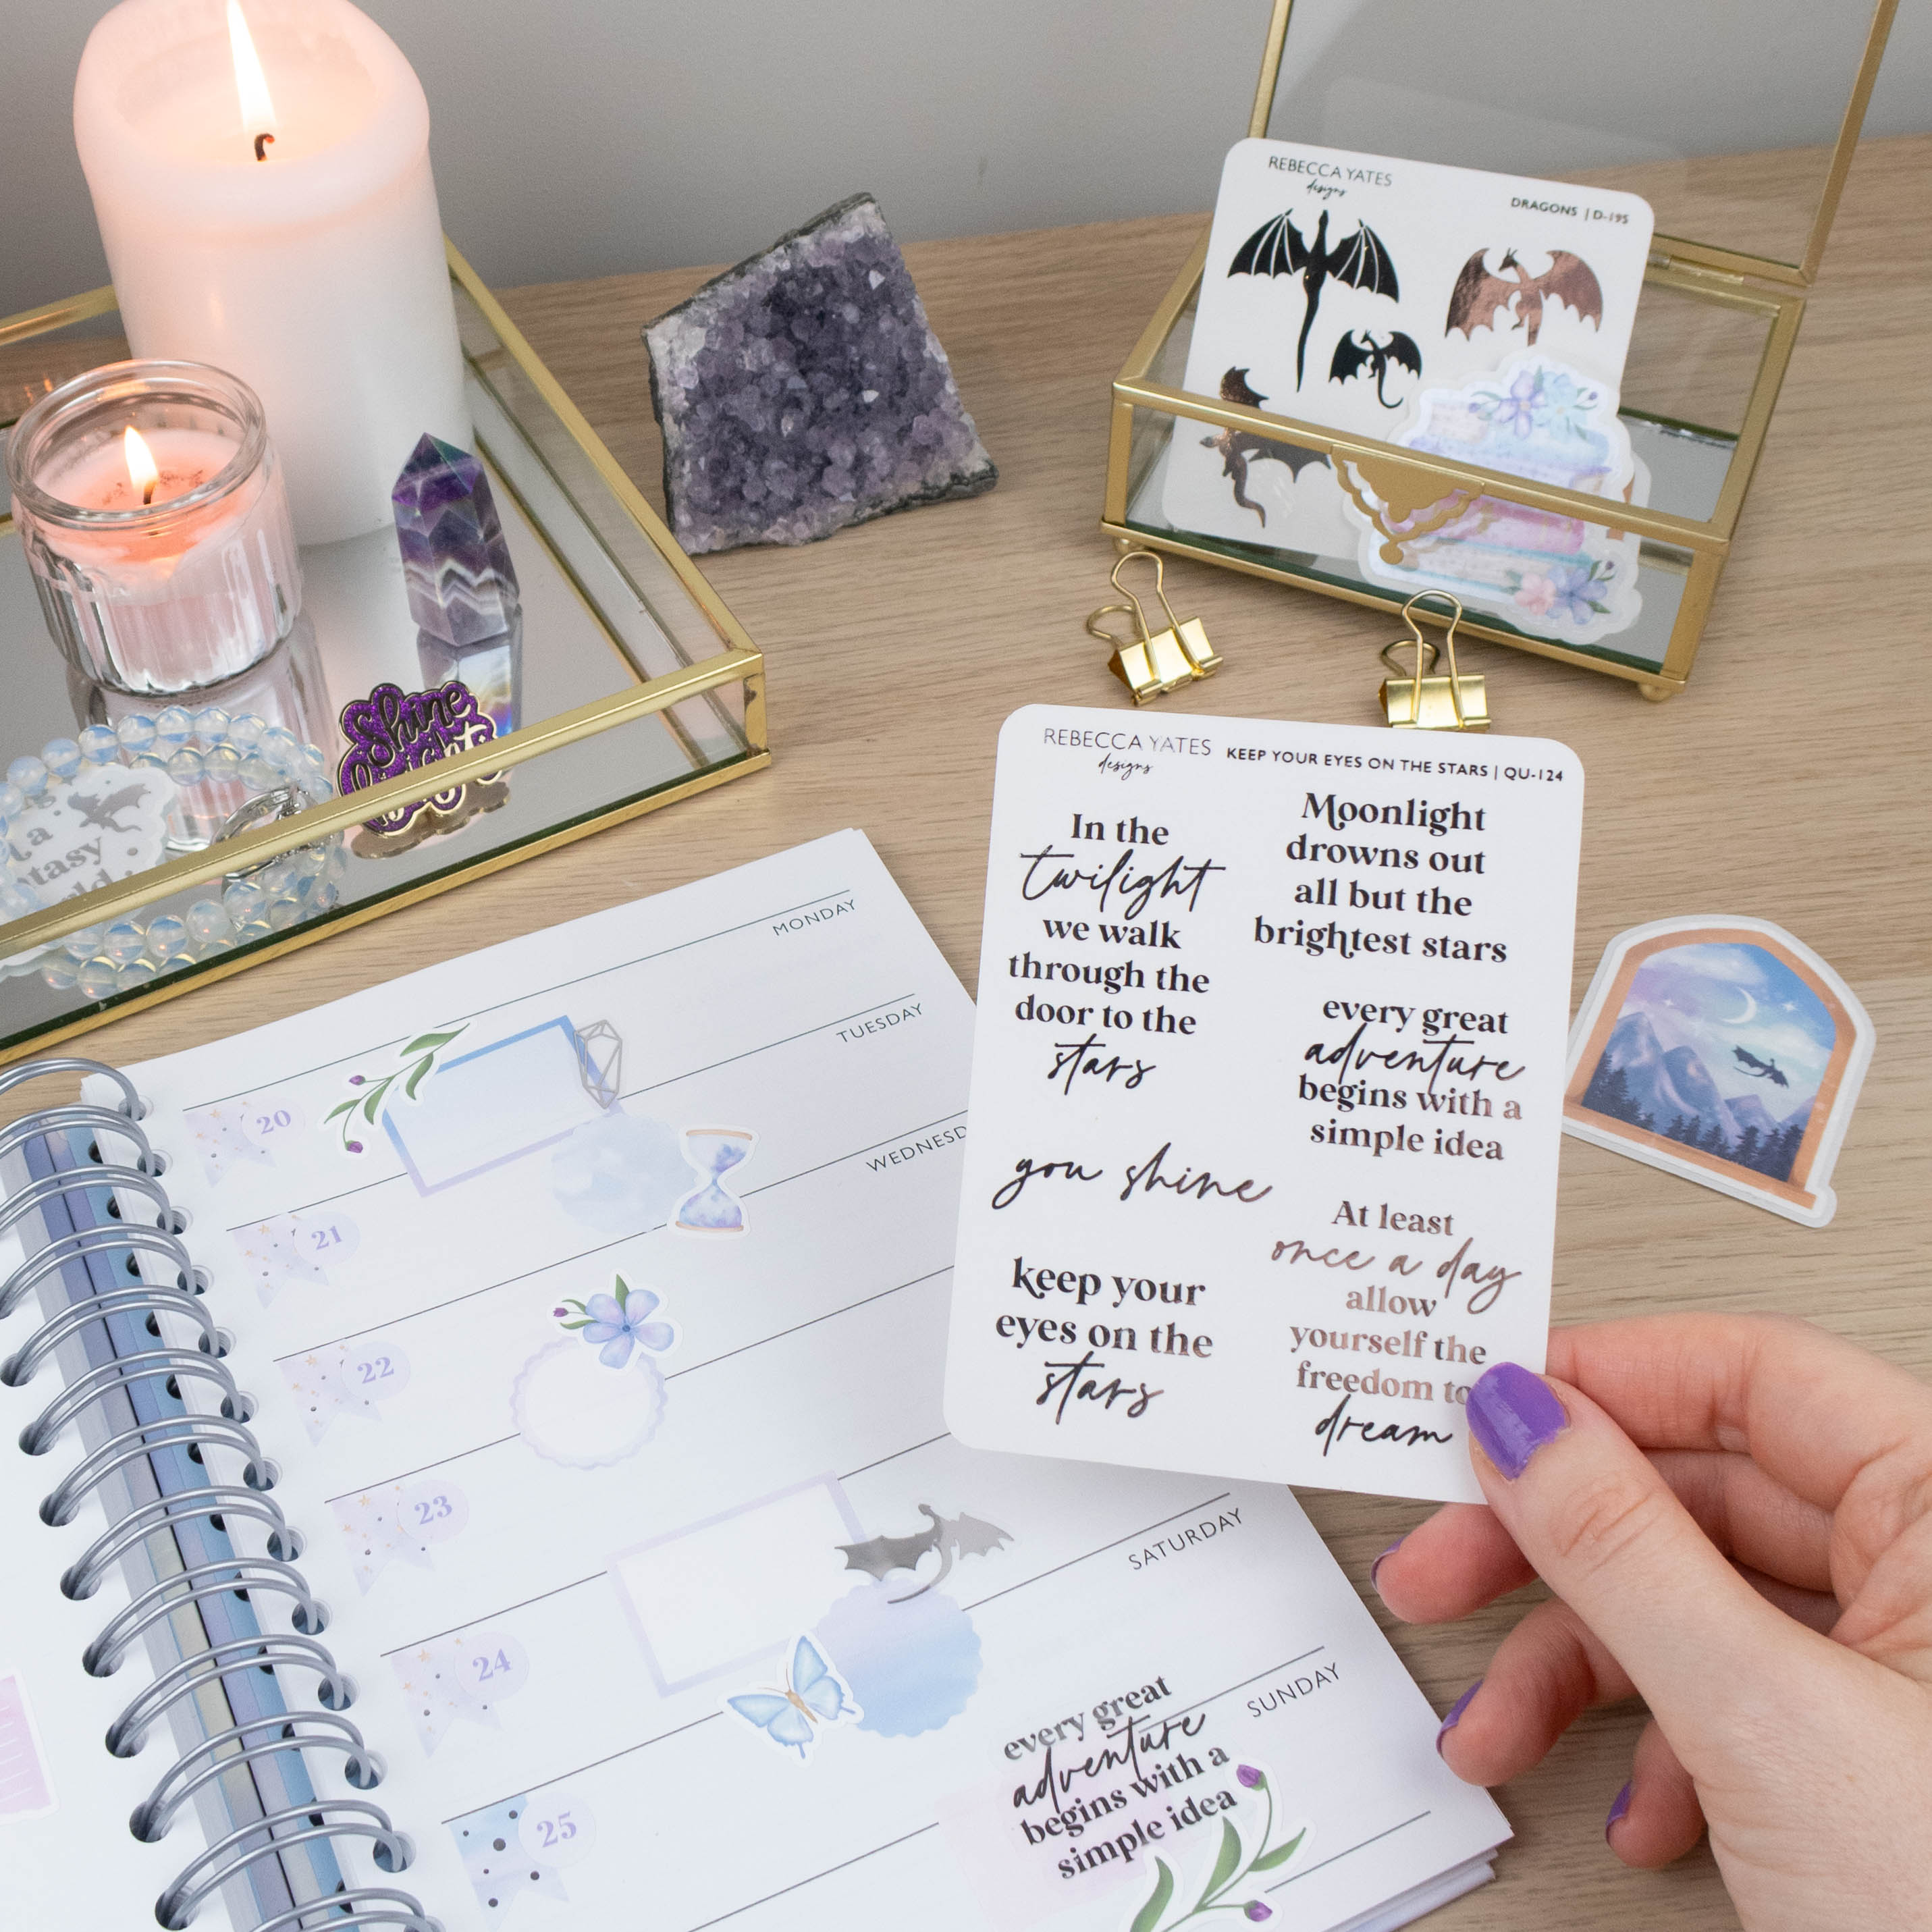 REBECCA YATES
designs
DRAGONS | D-195
Shine
REBECCA YATES
designs
KEEP YOUR EYES ON THE STARS | QU-124
In the
twilight
we walk
through the
door to the
stars
you shine
keep your
eyes on the
stars
Moonlight
drowns out
all but the
brightest stars
every great
adventure
begins with a
simple idea
At least
once a day
allow
yourself the
freedom to
dream
MONDAY
20
TUESDAY
21
WEDNESD
22
23
24
SATURDAY
25
SUNDAY
every great
adventure
begins with a
simple idea